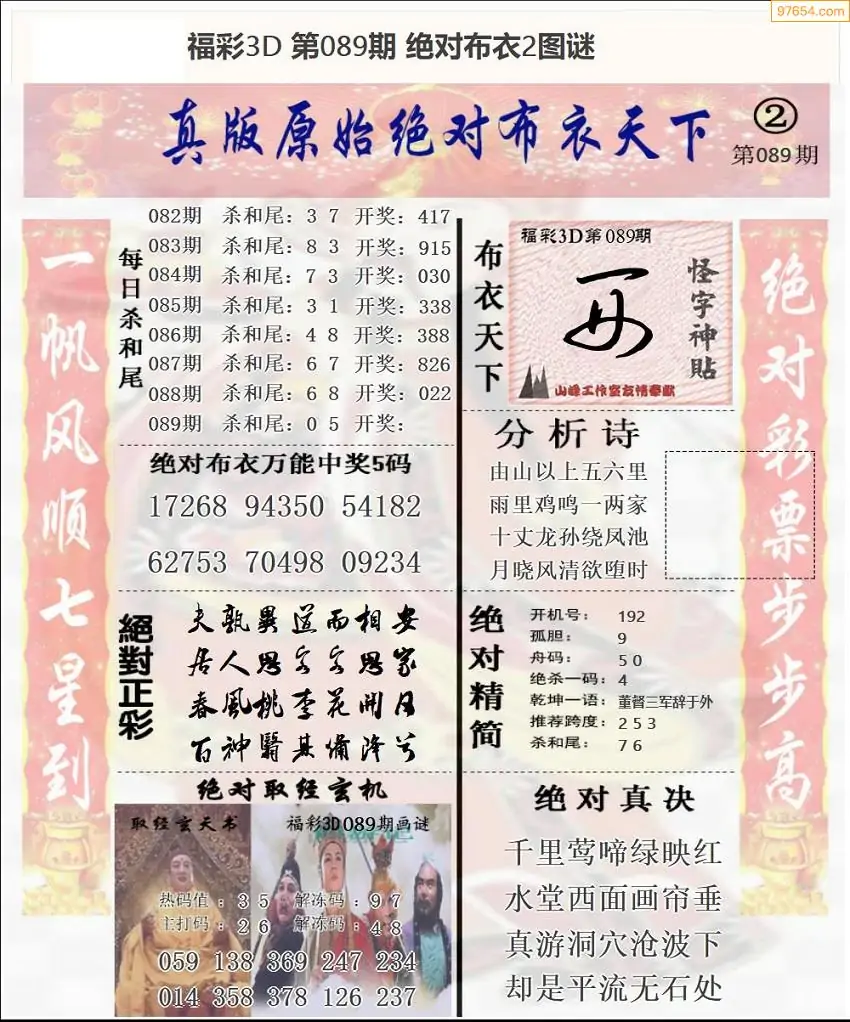 97654.com
福彩3D 第089期 绝对布衣2图谜
真版原始绝对布衣天下
②
第089期
一帆风顺七星到
每日杀和尾
082期 杀和尾：3 7 开奖：417
083期 杀和尾：8 3 开奖：915
084期 杀和尾：7 3 开奖：030
085期 杀和尾：3 1 开奖：338
086期 杀和尾：4 8 开奖：388
087期 杀和尾：6 7 开奖：826
088期 杀和尾：6 8 开奖：022
089期 杀和尾：0 5 开奖：
绝对布衣万能中奖5码
17268 94350 54182
62753 70498 09234
絕對正彩
夫 異道而相安
居人思客客思家
春風桃李花開日
百神翳其備降兮
绝对取经玄机
取经玄天书
福彩3D089期画谜
热码值：3 5 解冻码：9 7
主打码：2 6 解冻码：4 8
059 138 369 247 234
014 358 378 126 237
布衣天下
福彩3D第089期
怪字神貼
山峰工作室友情奉献
分析诗
由山以上五六里
雨里鸡鸣一两家
十丈龙孙绕凤池
月晓风清欲堕时
绝对精简
开机号： 192
孤胆： 9
舟码： 5 0
绝杀一码：4
乾坤一语：董督三军辞于外
推荐跨度：2 5 3
杀和尾： 7 6
绝对真决
千里莺啼绿映红
水堂西面画帘垂
真游洞穴沧波下
却是平流无石处
绝对彩票步步高